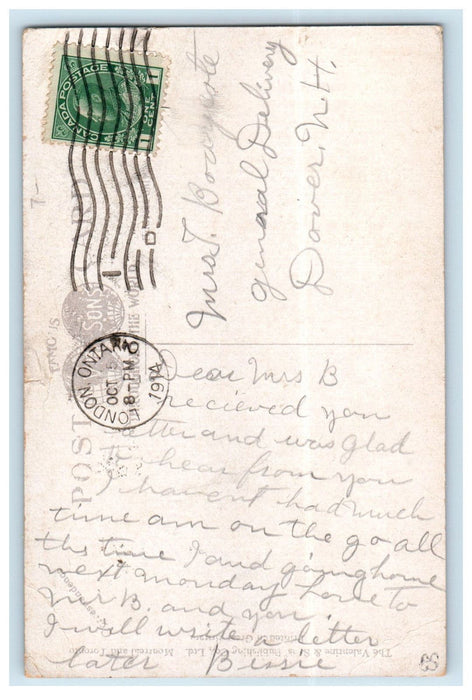 CANADA POSTAGE
ONE CENT
1 1
POST CARD
FAMOUS
SONS
THE WORLD
LONDON ONTARIO
OCT 5
18 - PM
1914
D
7-
Mrs T.
general Delivery
Dover, N.H.
Dear Mrs B
recieved you
letter and was glad
to hear from you
I havent had much
time am on the go all
the time I and going home
next monday love to
Mr B. and you.
I will write a letter
later Bessie
The Valentine & Sons Publishing Co., Ltd. Montreal and Toronto
Printed in Great